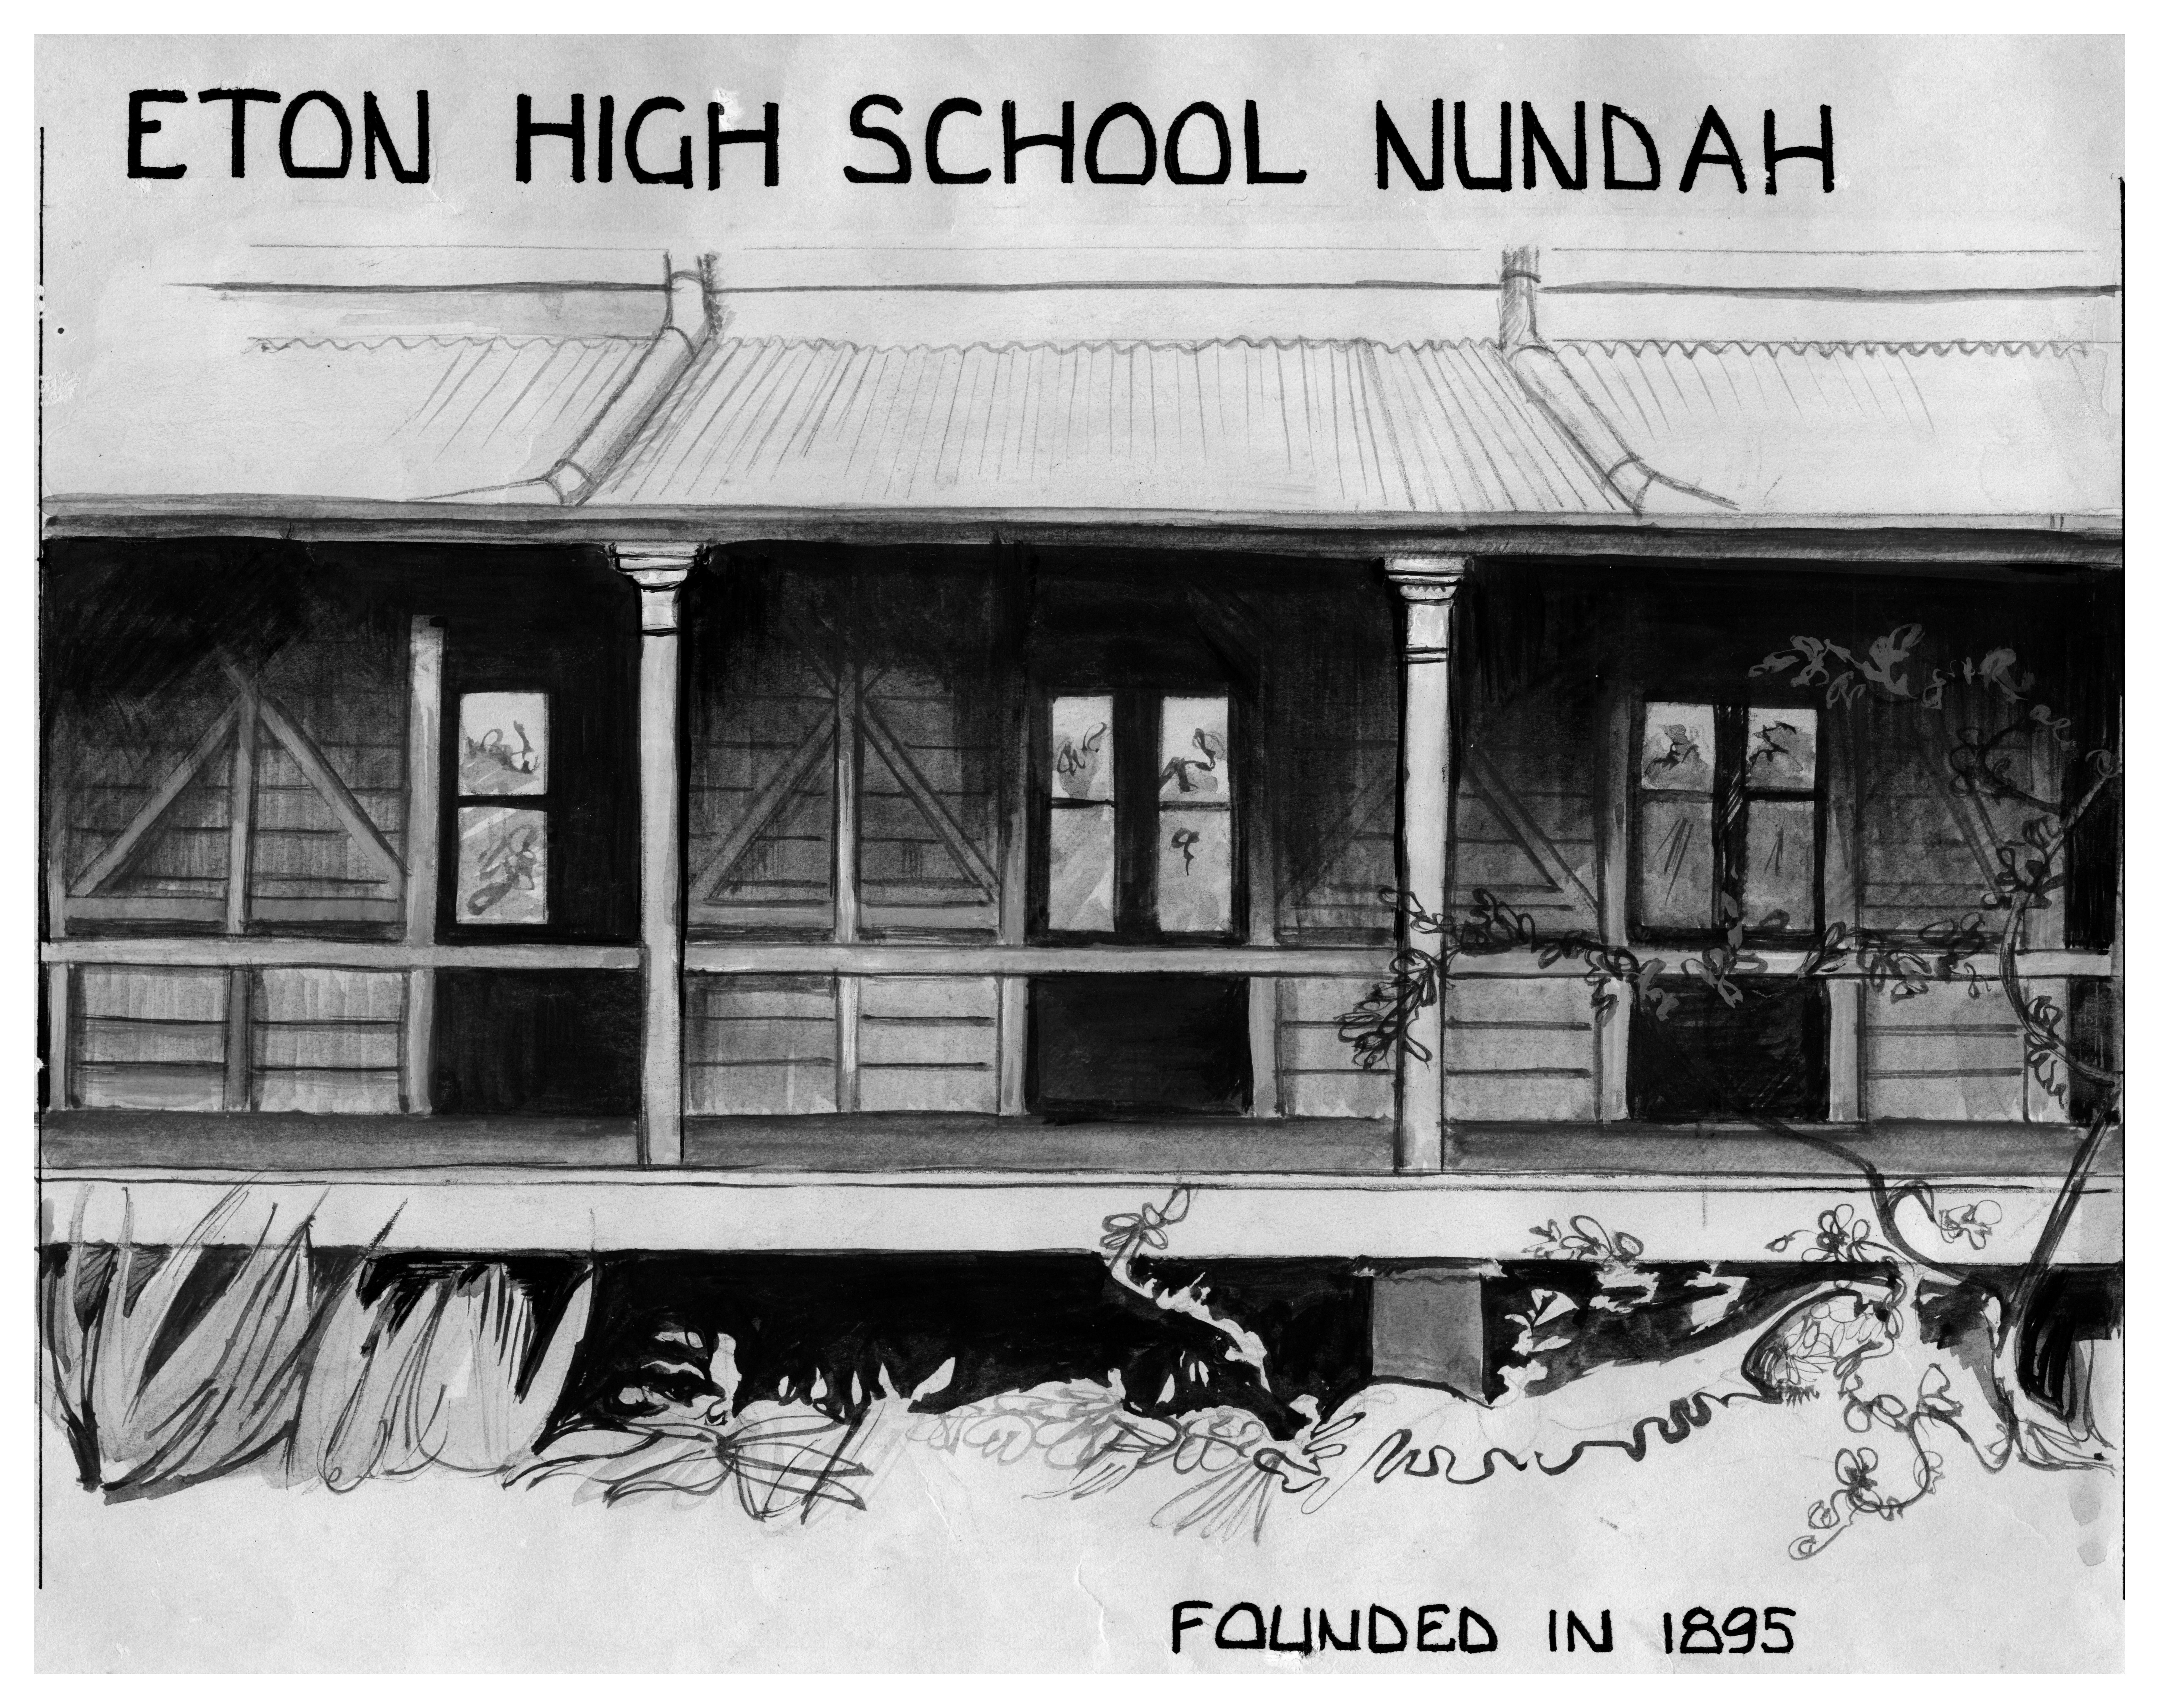 ETON HIGH SCHOOL NUNDAH
FOUNDED IN 1895